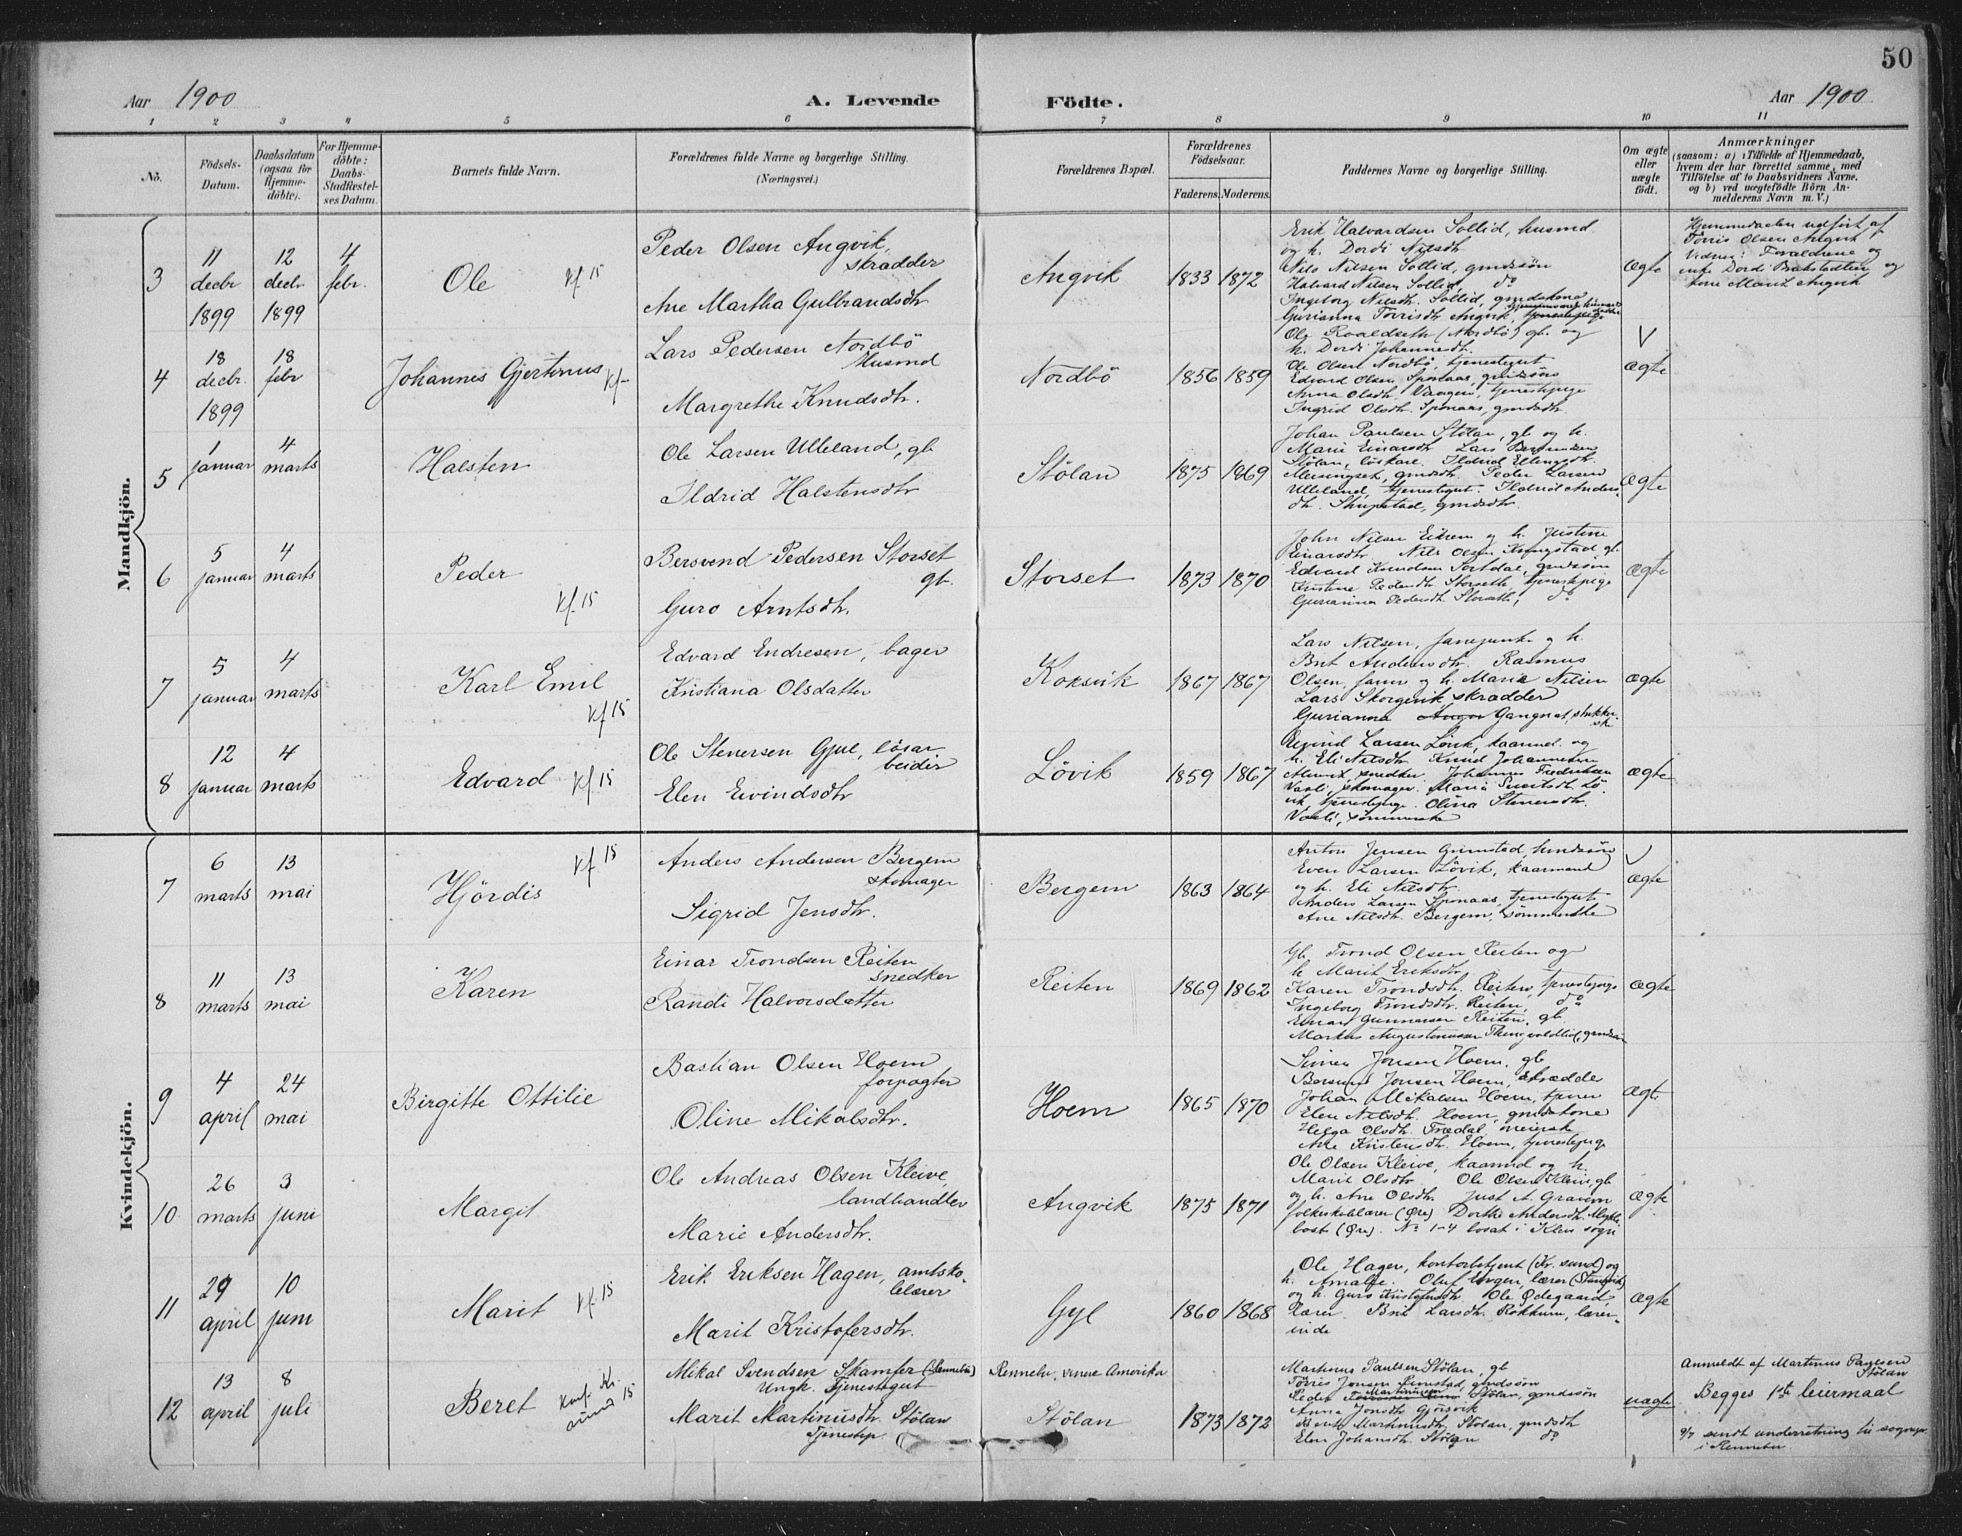 50
Aar 1900
A. Levende
Födte.
Aar 1900
1 2 3 4 5 6 7 8 9 10 11
No.
Födsels-
Datum.
Daabsdatum
(ogsaa for
Hjemme-
döbte).
For Hjemme-
döbte:
Daabs-
Stadfæstel-
ses Datum.
Barnets fulde Navn.
Forældrenes fulde Navne og borgerlige Stilling.
(Næringsvei.)
Forældrenes Bopæl.
Forældrenes
Födselsaar.
Faderens. Moderens.
Faddernes Navne og borgerlige Stilling.
Om ægte
eller
uægte
födt.
Anmærkninger
(saasom: a) i Tilfælde af Hjemmedaab,
hvem der har forrettet samme, med
Tilföielse af to Daabsvidners Navne,
og b) ved uægtefödte Börn An-
melderens Navn m. V.)
Mandkjön.
3
11
decbr
1899
12
decbr
1899
4
febr.
Ole
kf 15
Peder Olsen Angvik,
skrædder
Ane Martha Gulbrandsdtr
Angvik
1833 1872
Erik Halvardsen Sollid, husmd
og h. Dordi Nilsdtr.
Nils Nilsen Sollid, gmdssön
Halvard Nilsen Sollid, do
Ingeborg Nilsdtr. Sollid, gmdskone
Gurianna Torrisdtr Angvik,
ægte
Hjemmedaaben udfört af
Torris Olsen Angvik
Vidner: Forældrene og
enke Dordi og
kone Marit Angvik
4
18
decbr.
1899
18
febr
Johannes Gjertinius
kf
Lars Pedersen Nordbö
Husmd
Margrethe Knudsdtr.
Nordbö
1856 1859
Ole Roaldseth (Nordbö) gb. og
h. Dordi Johannesdtr.
Ole Olsen Nordbö, tjenestegut
Edvard Olsen Sponaas, gmdssön
Anna Olsdtr. Vaagen, tjenestepige
Ingrid Olsdtr. Sponaas, gmdsdtr.
V
ægte
5
1
januar
4
marts
Halsten
Ole Larsen Ulleland, gb
Ildrid Halstensdtr
Stölan
1875 1869
Johan Paulsen Stölan, gb og h.
Marie Einarsdtr. Lars
Stölan, löskarl. Ildrid Ellingsdtr.
Meisingset, gmdsdtr. Peder Larsen
Ulleland, tjenestegut. Ildrid Anders-
dtr. gmdsdtr.
ægte
6
5
januar
4
marts
Peder
kf. 15
Bersvend Pedersen Storset
gb.
Guro Arntsdtr.
Storset
1873 1870
John Nilsen Eikrem og h. Justine
Einarsdtr. Nils Olsen gb.
Edvard Knudsen gmdssön
Kristine Pedersdtr. Storseth, tjenestepige
Gurianna Pedersdtr. Storseth, do
ægte
7
5
januar
4
marts
Karl Emil
kf 15
Edvard Endresen, bager
Kristiana Olsdatter
Koksvik
1867 1867
Lars Nilsen, og h.
Brit Andersdtr. Rasmus
Olsen, og h. Maria Nilsen
Lars Skorgevik skrædder
Gurianna Gangnat,
ægte
8
12
januar
4
marts
Edvard kf 15
Ole Stenersen Gjul, lösar
beider
Elen Eivindsdtr
Lövik
1859 1867
Larsen Lövik, kaarmd. og
h. Eli Nilsdtr. Knud Johannesen
snedker. Johannes Fredriksen
Vaali, skomager. Marie Lö-
vik, tjenestepige. Olina Stenersdtr.
Vaali, sömmerske
ægte
Kvindekjön.
7
6
marts
13
mai
Hjördis
kf 15
Anders Andersen Bergem
skomager
Sigrid Jensdtr.
Bergem
1863 1864
Anton Jensen Grimstad,
Even Larsen Lövik, kaarmand
og h. Eli Nilsdtr.
Anders Larsen Sponaas, tjenestegut
Ane Nilsdtr. Bergem, sömmerske
V
ægte
8
11
marts
13
mai
Karen
Einar Trondsen Reiten
snedker
Randi Halvorsdatter
Reiten
1869 1862
Gb. Trond Olsen Reiten og
h. Marit Eriksdtr.
Karen Trondsdtr. Reiten, tjenestepige
Ingeborg Trondsdtr. Reiten, do
Einar Gunnarsen Reiten, gb
Markus Augustinussen
ægte
9
4
april
24
mai
Birgitte Ottilie
Bastian Olsen Hoem
forpagter
Oline Mikalsdtr.
Hoem
1865 1870
Simen Jonsen Hoem, gb
Jonsen Hoem, skrædder
Johan Mikalsen Hoem,
Elen Nilsdtr. Hoem, gmdskone
Helga Olsdtr. meierske
Ane Kristensdtr. Hoem, tjenestepige
ægte
10
26
marts
3
juni
Margit
Ole Andreas Olsen Kleive,
landhandler
Marie Andersdtr.
Angvik
1875 1871
Ole Olsen Kleive, kaarmd og h.
Marit Olsdtr. Ole Olsen Kleive, gb
og h. Ane Olsdtr. Just A. Gravem
folkeskolelærer (Öre). Dorthe Andersdtr.
(Öre). No 1-4 bosat i sogn
ægte
11
29
april
10
juni
Marit kf. 15
Erik Eriksen Hagen, amtsko-
lelærer
Marit Kristofersdtr.
Gyl
1860 1868
Ole Hagen, kontorbetjent (Kr. sund) og
h. Amalie. Oluf Hagen, lærer
og h. Guro Kristofersdtr. Ole Ödegaard
lærer. Brit Larsdtr. Rokkum, lærer-
inde
ægte
12
13
april
8
juli
Beret
Konf. Kr.
sund 15
Mikal Svendsen Skamfer (Rennebu)
Ungk. Tjenestegut
Marit Martinusdtr. Stölan
Tjenestep.
Rennebu, Amerika
Stölan
1873 1872
Martinus Paulsen Stölan, gb
Törris Jonsen Rimstad, gmdssön
Peder Martinussen Stölan, gmdssön
Anna Jonsdtr Gjörsvik
Berit Martinusdtr. Stölan, gmdsdtr
Elen Johansdtr. Stölan do
uægte
Anmeldt af Martinus Paulsen
Stölan
Begges 1ste leiermaal
9/7 sendt underretning til sognepr.
i Rennebu